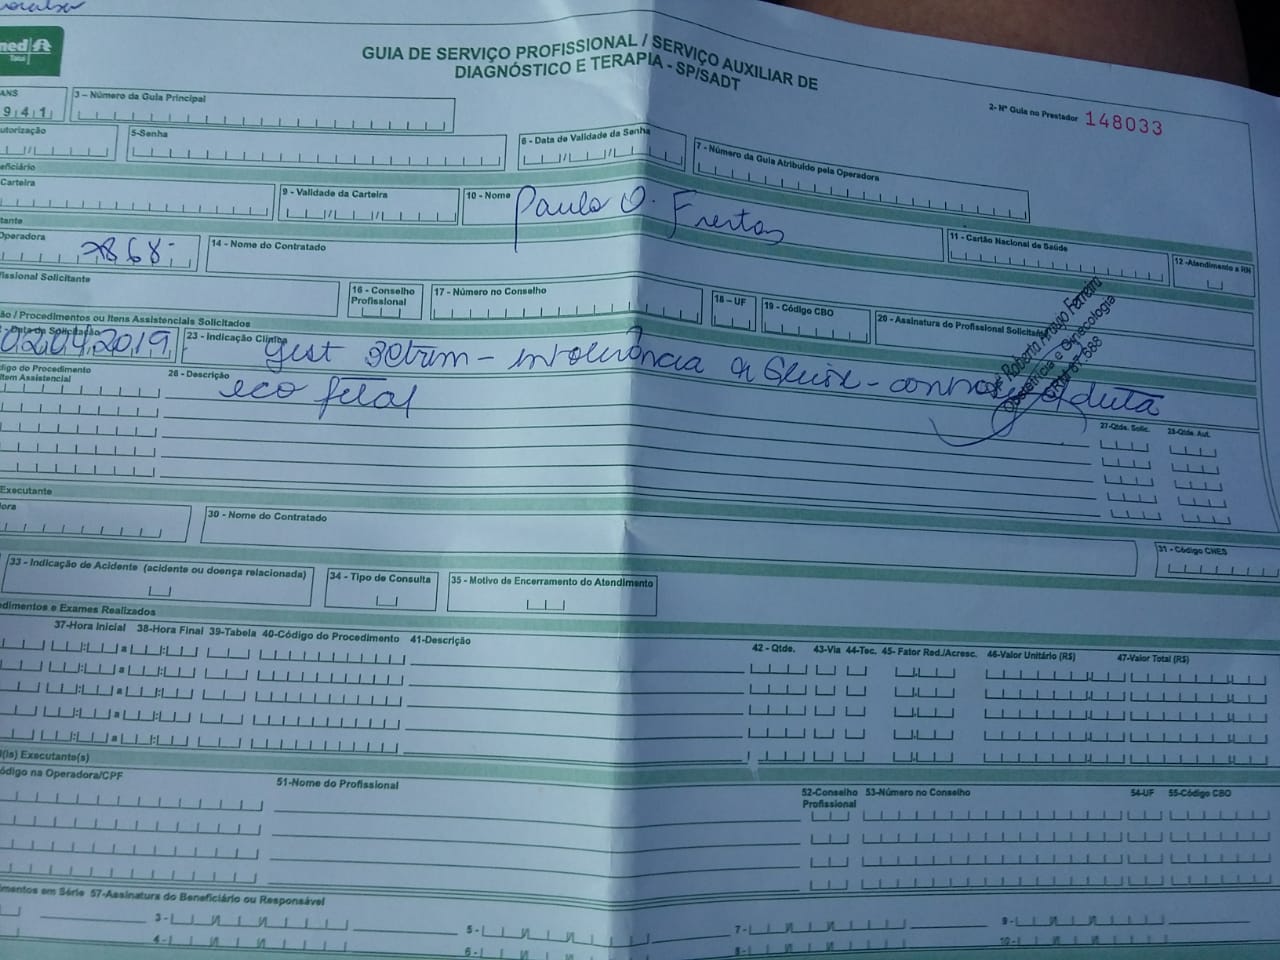 GUIA DE SERVIÇO PROFISSIONAL / SERVIÇO AUXILIAR DE
DIAGNÓSTICO E TERAPIA - SP/SADT
2- Nº Guia no Prestador 148033
ANS
9 4 1
3 – Número da Guia Principal
5-Senha
6 - Data de Validade da Senha
7 - Número da Guia Atribuído pela Operadora
Carteira
9 - Validade da Carteira
10 - Nome
Freitas
11 - Cartão Nacional de Saúde
12 -Atendimento a RN
Operadora
868
14 - Nome do Contratado
Solicitante
16 - Conselho
Profissional
17 - Número no Conselho
18 – UF
19 - Código CBO
20 - Assinatura do Profissional Solicitante
/ Procedimentos ou Itens Assistenciais Solicitados
Data da Solicitação
02 04 2019
23 - Indicação Clínica
Gest 3ºtrim - intolerância
Roberto Araujo Ferreira
Obstetrícia e Ginecologia
do Procedimento
Assistencial
26 - Descrição
eco fetal
27-Qtde. Solic.
28-Qtde. Aut.
Executante
30 - Nome do Contratado
31 - Código CNES
33 - Indicação de Acidente (acidente ou doença relacionada)
34 - Tipo de Consulta
35 - Motivo de Encerramento do Atendimento
e Exames Realizados
37-Hora Inicial 38-Hora Final 39-Tabela 40-Código do Procedimento 41-Descrição
42 - Qtde. 43-Via 44-Tec. 45- Fator Red./Acresc. 46-Valor Unitário (R$) 47-Valor Total (R$)
Executante(s)
na Operadora/CPF
51-Nome do Profissional
52-Conselho
Profissional
53-Número no Conselho
54-UF
55-Código CBO
em Série 57-Assinatura do Beneficiário ou Responsável
3 -
5 -
7 -
9 -
4 -
6 -
8 -
10 -